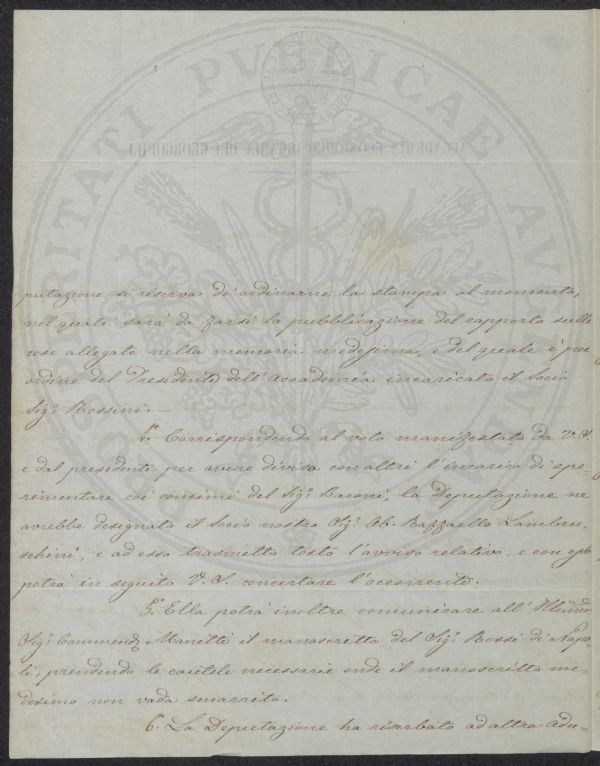 PROSPERITATI PVBLICAE AVGENDAE
L'ACCADEMIA ECONOMICO-AGRARIA DEI GEORGOFILI
putazione si riserva di ordinarne la stampa al momento,
nel quale sarà da farsi la pubblicazione del rapporto sulle
cose allegate nella memoria medesima, e del quale è per
ordine del Presidente dell'Accademia incaricato il Socio
Sig.r Rossini.—
4.° Corrispondendo al voto manifestato da V.S.
e dal presidente per avere diviso con altri l'incarico di spe-
rimentare coi concimi del Sig.r Baroni, la Deputazione ne
avrebbe designato il Socio nostro Sig.r Ab. Raffaello Lambru-
schini, e ad esso trasmetto tosto l'avviso relativo, e con esso
potrà in seguito V.S. concertare l'occorrente.
5.° Ella potrà inoltre comunicare all'Illmo
Sig.r Commend.r Manetti il manoscritto del Sig.r Rossi di Napo-
li, prendendo le cautele necessarie onde il manoscritto me-
desimo non vada smarrito.
6.° La Deputazione ha riserbato ad altra adu-